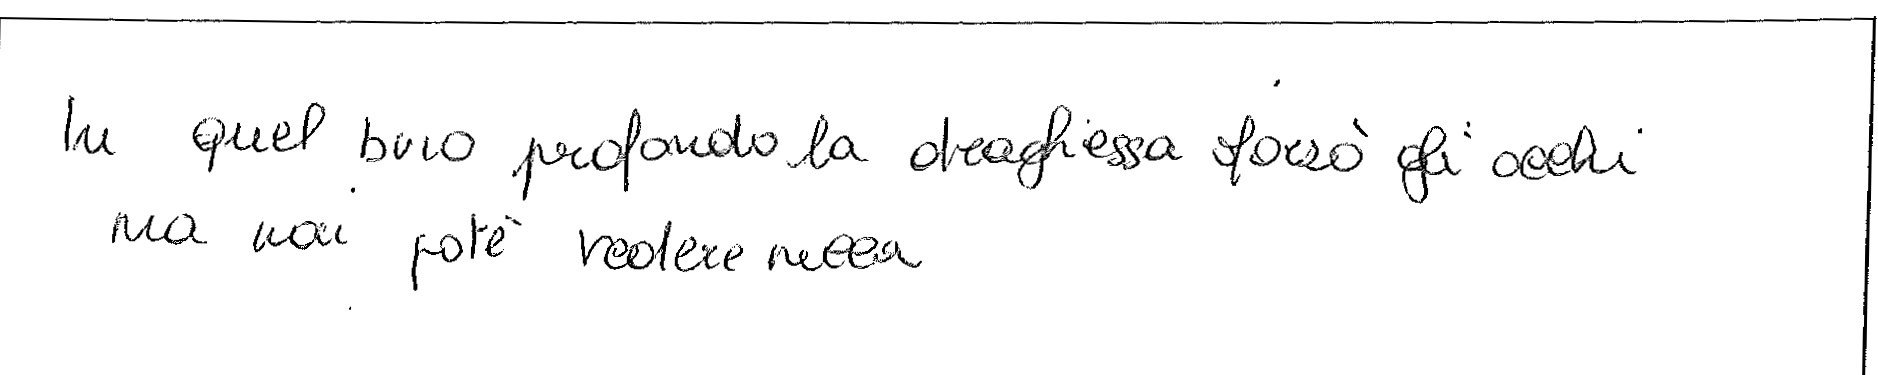 In quel buio profondo la draghessa sforzò gli occhi
ma mai potè vedere nulla